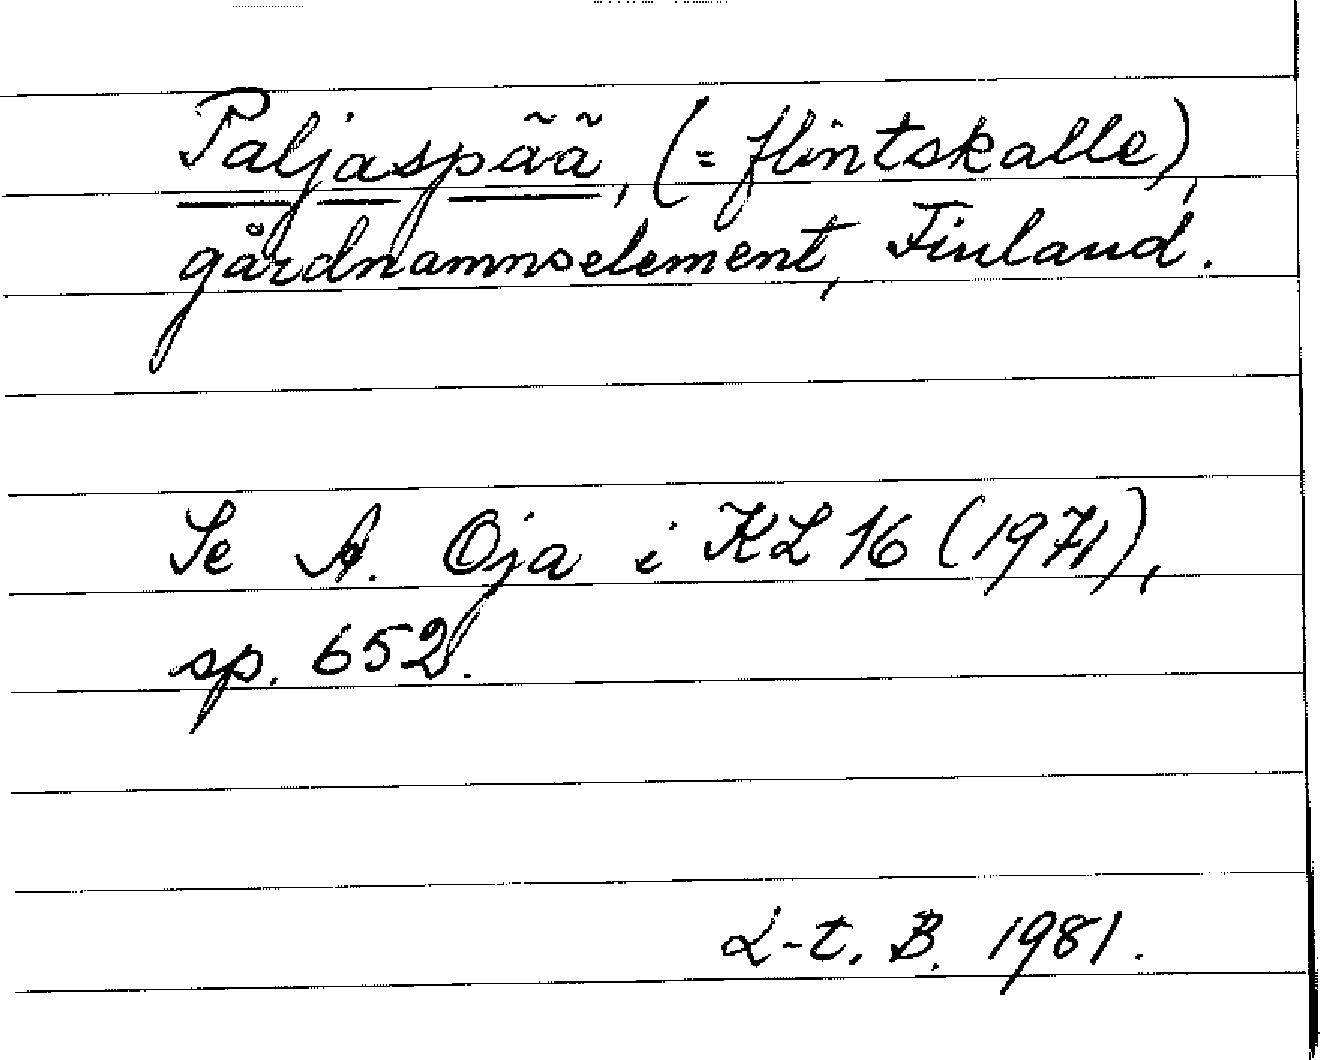 Paljaspää, (= flintskalle),
gårdnamnselement, Finland.
Se A. Oja i KL 16 (1971),
sp. 652.
L-t. B. 1981.